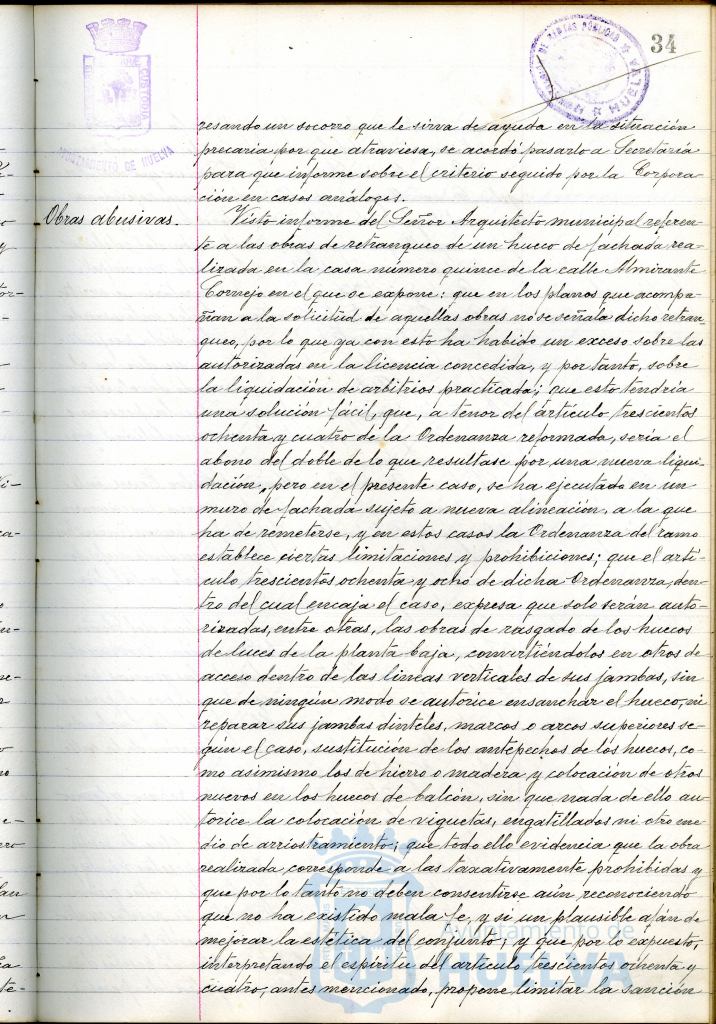 34
AYUNTAMIENTO DE HUELVA
resando un socorro que le sirva de ayuda en la situación
precaria por que atraviesa, se acordó pasarlo a Secretaría
para que informe sobre el criterio seguido por la Corpora-
ción en casos análogos.
Obras abusivas.
Visto informe del Señor Arquitecto municipal referen-
te a las obras de retranqueo de un hueco de fachada rea-
lizada en la casa número quince de la calle Almirante
Cornejo en el que se expone: que en los planos que acompa-
ñan a la solicitud de aquellas obras no se señala dicho retran-
queo, por lo que ya con esto ha habido un exceso sobre las
autorizadas en la licencia concedida, y por tanto, sobre
la liquidación de arbitrios practicada; que esto tendría
una solución fácil, que, a tenor del artículo trescientos
ochenta y cuatro de la Ordenanza reformada, sería el
abono del doble de lo que resultase por una nueva liqui-
dación, pero en el presente caso, se ha ejecutado en un
muro de fachada sujeto a nueva alineación, a la que
ha de remeterse, y en estos casos la Ordenanza del ramo
establece ciertas limitaciones y prohibiciones; que el artí-
culo trescientos ochenta y ocho de dicha Ordenanza, den-
tro del cual encaja el caso, expresa que solo serán auto-
rizadas, entre otras, las obras de rasgado de los huecos
de luces de la planta baja, convirtiéndolos en otros de
acceso dentro de las líneas verticales de sus jambas, sin
que de ningún modo se autorice ensanchar el hueco, ni
reparar sus jambas dinteles, marcos o arcos superiores se-
gún el caso, sustitución de los antepechos de los huecos, co-
mo asimismo los de hierro o madera y colocación de otros
nuevos en los huecos de balcón, sin que nada de ello au-
torice la colocación de viguetas, engatillados ni otro me-
dio de arriostramiento; que todo ello evidencia que la obra
realizada corresponde a las taxativamente prohibidas y
que por lo tanto no deben consentirse aún reconociendo
que no ha existido mala fe, y si un plausible afán de
mejorar la estética del conjunto; y que por lo expuesto,
interpretando el espíritu del artículo trescientos ochenta y
cuatro, antes mencionado, propone limitar la sanción
Ayuntamiento de
HUELVA